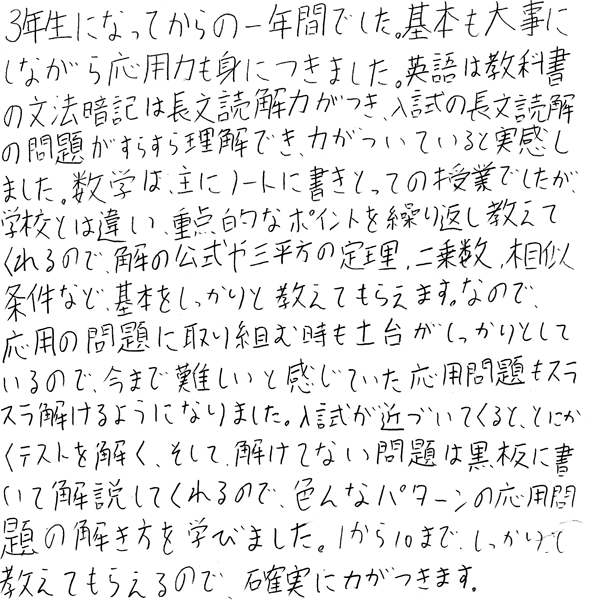 3年生になってからの一年間でした。基本も大事に
しながら応用力も身につきました。英語は教科書
の文法暗記は長文読解力がつき、入試の長文読解
の問題がすらすら理解でき、力がついていると実感し
ました。数学は、主にノートに書きとっての授業でしたが、
学校とは違い、重点的なポイントを繰り返し教えて
くれるので、解の公式や三平方の定理、二乗数、相似
条件など、基本をしっかりと教えてもらえます。なので、
応用の問題に取り組む時も土台がしっかりとして
いるので、今まで難しいと感じていた応用問題もスラ
スラ解けるようになりました。入試が近づいてくると、とにか
くテストを解く、そして、解けてない問題は黒板に書
いて解説してくれるので、色んなパターンの応用問
題の解き方を学びました。1から10まで、しっかりと
教えてもらえるので、確実に力がつきます。